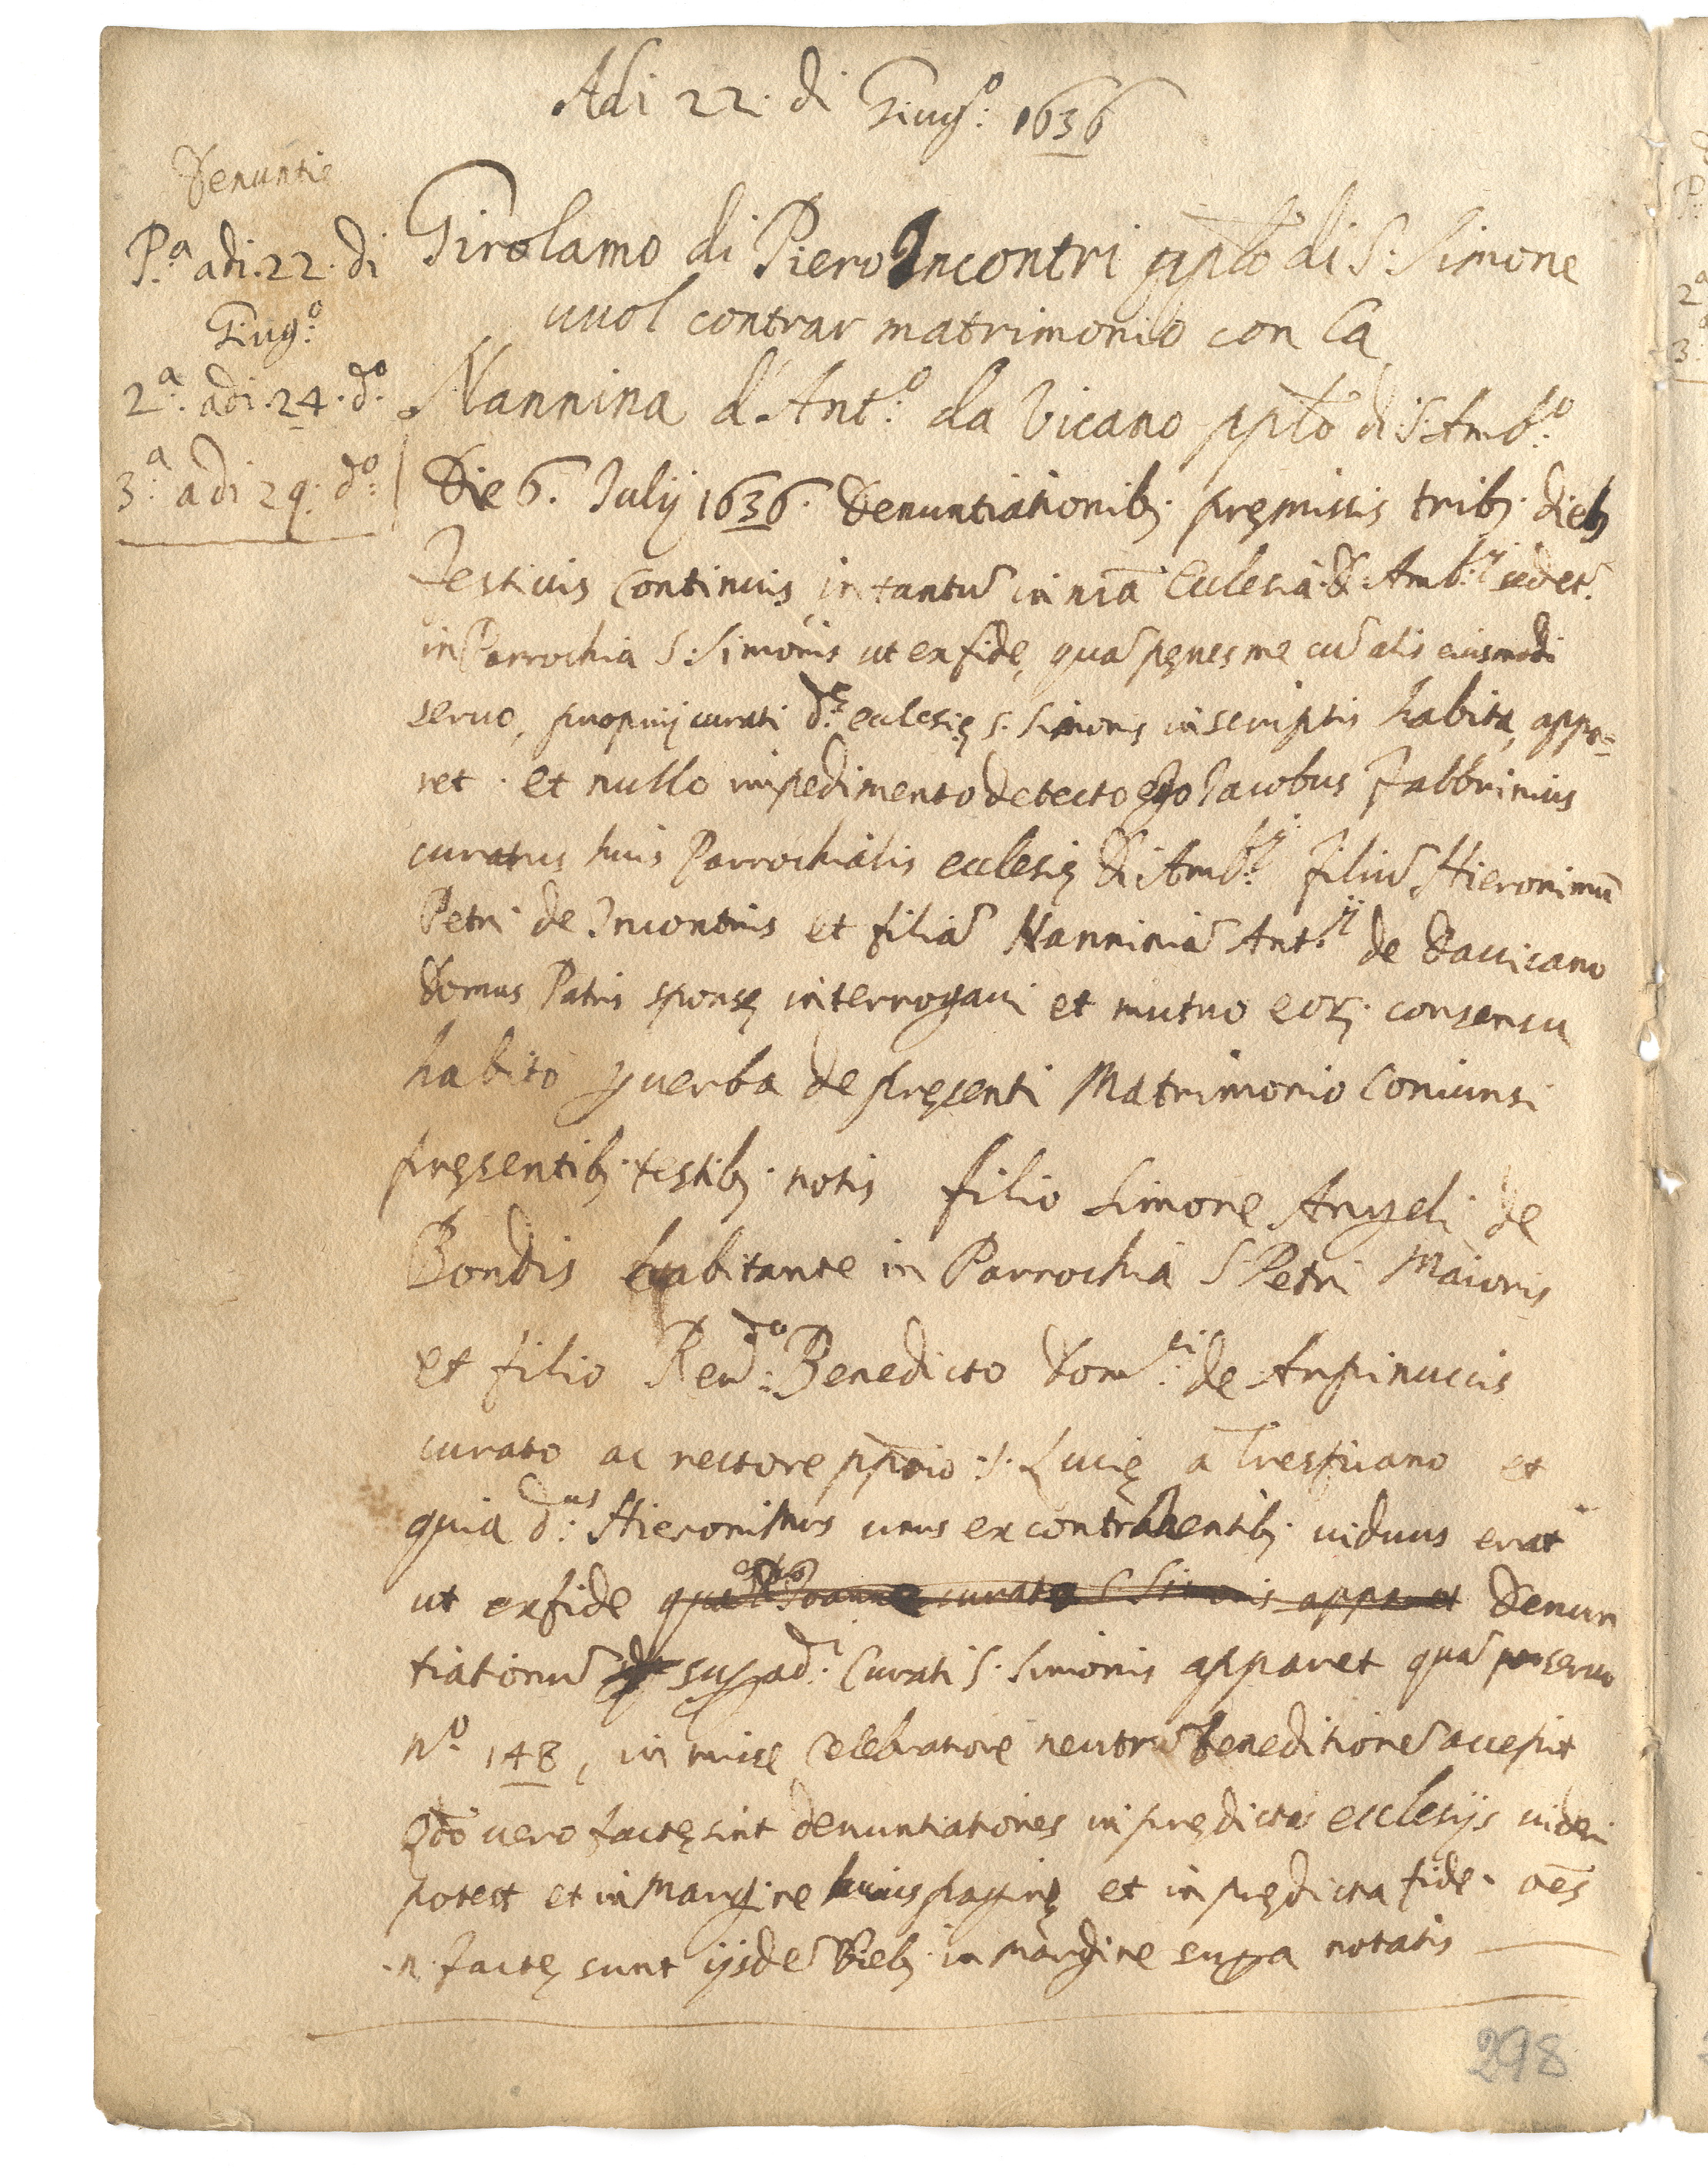 Adi 22. di Giug.º 1636
Denuntie
P.ª adi. 22. di
Giug.º
2.ª adi. 24. d.º
3.ª adi 29. d.º
Girolamo di Piero Incontri pplo di S: Simone
vuol contrar matrimonio con la
Nannina d'Ant.º da Vicano pplo di S: Amb.º
Die 6. Julij 1636. Denuntiationibꝫ premissis tribꝫ diebꝫ
festiuis continuis in tantũ in nrã Ecclesia S. Amb.ij sed et.
in Parrochia S: Simonis ut ex fide, quã penes me cũ alis eiusmodi
seruo, proprij curati d.ę ecclesię S. Simonis in scriptis habita, appa=
ret. et nullo impedimento detecto ego Jacobus Fabbrinius
curatus huius Parrochialis ecclesię Sãti Amb.ij filiũ Hieronimũ
Petri de Incontris et filiã Nanniniã Ant.ij de Dauicano
Domus Patris sponsę interrogaui et mutuo eorꝫ. consensu
habito ꝑ uerba de pręsenti Matrimonio coniunsi
pręsentibꝫ. testibꝫ. notis filio Simone Angeli de
Bondis habitante in Parrochia S Petri Maioris
et filio Reu.do Benedicto Dom.ci de Arpinuccis
curato ac rectore pprio. S. Lucię a Trespiano et
quia d.us Hieronimus unus ex contrahentibꝫ. uiduus erat
ut ex fide Joanne curato S Simonis apparet Denun
tiationũ supad.i Curati S. Simonis apparet quã seruo
n.º 148, in missę celebratione neutrũ beneditionẽ accepit
Qdo uero factę sint denuntiationes in prędictis ecclesijs uideri
potest et in margine huius paginę et in prędicta fide. oẽs
.n. factę sunt ijsdẽ diebꝫ. in margine supra notatis
298